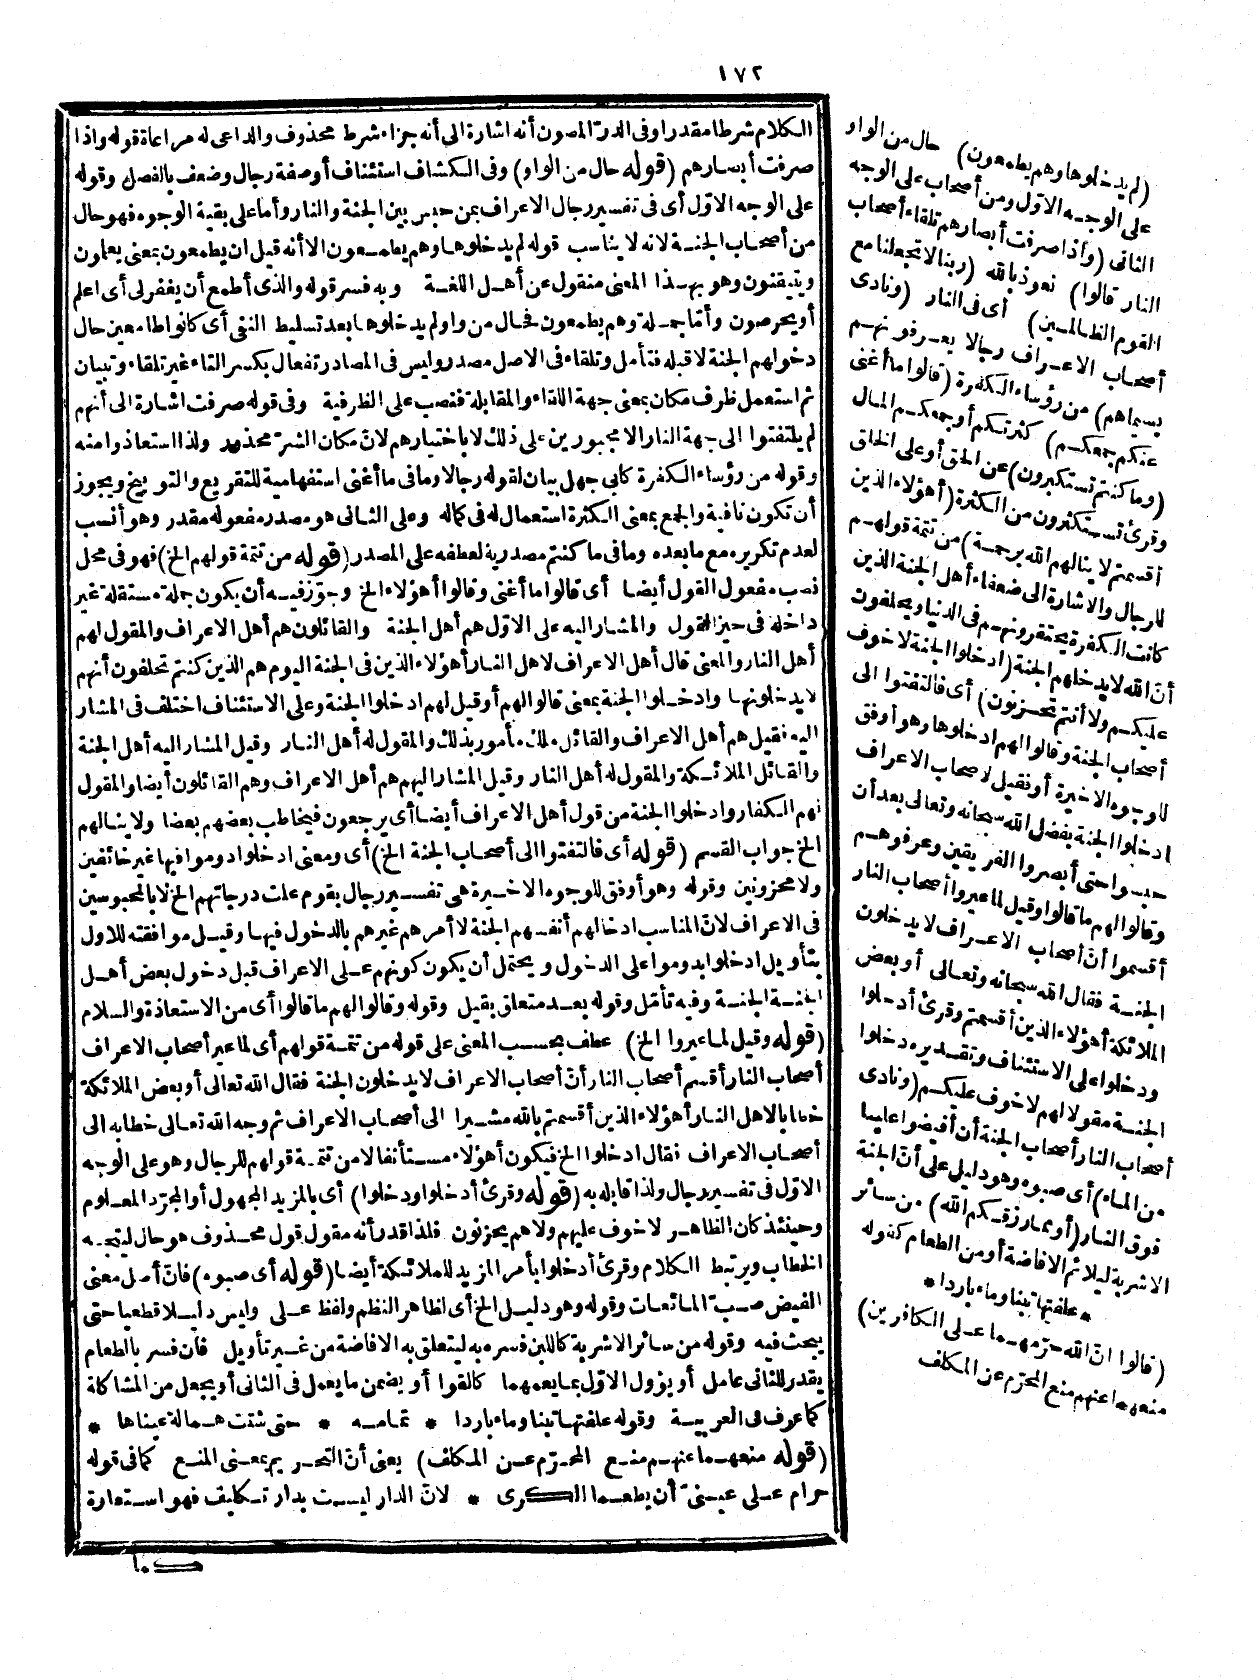 ١٧٢
الكلام شرطا مقدرا وفى الدر المصون أنه اشارة الى أنه جزاء شرط محذوف والداعى له مراعاة قوله واذا
صرفت أبصارهم (قوله حال من الواو) وفى الكشاف استئناف أو صفة رجال وضعف بالفصل وقوله
على الوجه الاوّل أى فى تفسير رجال الاعراف بمن حبس بين الجنة والنار وأما على بقية الوجوه فهو حال
من أصحاب الجنة لانه لا يناسب قوله لم يدخلوها وهم يطمعون الا أنه قيل ان يطمعون بمعنى يعلمون
ويتيقنون وهو بهذا المعنى منقول عن أهل اللغة وبه فسر قوله والذى أطمع أن يغفر لى أى اعلم
أو يحرصون وأمّا جملة وهم يطمعون فحال من واو لم يدخلوها بعد تسليط النفى أى كانوا طامعين حال
دخولهم الجنة لا قبله فتأمل وتلقاء فى الاصل مصدر وليس فى المصادر تفعال بكسر التاء غير تلقاء وتبيان
ثم استعمل ظرف مكان بمعنى جهة اللقاء والمقابلة فنصب على الظرفية وفى قوله صرفت اشارة الى أنهم
لم يلتفتوا الى جهة النار الا مجبورين على ذلك لا باختيارهم لانّ مكان الشرّ محذور ولذا استعاذوا منه
وقوله من رؤساء الكفرة كابى جهل بيان لقوله رجالا وما فى ما أغنى استفهامية للتقريع والتوبيخ ويجوز
أن تكون نافية والجمع بمعنى الكثرة استعمال له فى كماله وعلى الثانى هو مصدر مفعوله مقدر وهو أنسب
لعدم تكريره مع ما بعده وما فى ما كنتم مصدرية لعطفه على المصدر (قوله من تتمة قولهم الخ) فهو فى محل
نصب مفعول القول أيضا أى قالوا ما أغنى وقالوا أهؤلاء الخ وجوّز فيه أن يكون جملة مستقلة غير
داخلة فى حيز القول والمشار اليه على الاوّل هم أهل الجنة والقائلون هم أهل الاعراف والمقول لهم
أهل النار والمعنى قال أهل الاعراف لاهل النار أهؤلاء الذين فى الجنة اليوم هم الذين كنتم تحلفون أنهم
لا يدخلونها وادخلوا الجنة بمعنى قالوا لهم أو قيل لهم ادخلوا الجنة وعلى الاستئناف اختلف فى المشار
اليه فقيل هم أهل الاعراف والقائل ملك مأمور بذلك والمقول له أهل النار وقيل المشار اليه أهل الجنة
والقائل الملائكة والمقول له أهل النار وقيل المشار اليهم هم أهل الاعراف وهم القائلون أيضا والمقول
لهم الكفار وادخلوا الجنة من قول أهل الاعراف أيضا أى يرجعون فيخاطب بعضهم بعضا ولا ينالهم
الخ جواب القسم (قوله أى فالتفتوا الى أصحاب الجنة الخ) أى ومعنى ادخلوا دوموا فيها غير خائفين
ولا محزونين وقوله وهو أوفق للوجوه الاخيرة هى تفسير رجال بقوم علت درجاتهم الخ لا بالمحبوسين
فى الاعراف لانّ المناسب ادخالهم أنفسهم الجنة لا أمرهم غيرهم بالدخول فيها وقيل موافقته للاول
بتأويل ادخلوا بدوموا على الدخول ويحتمل أن يكون كونهم على الاعراف قبل دخول بعض أهل
الجنة الجنة وفيه تأمّل وقوله بعد متعلق بقيل وقوله وقالوا لهم ما قالوا أى من الاستعاذة والسلام
(قوله وقيل لما عيروا الخ) عطف بحسب المعنى على قوله من تتمة قولهم أى لما عير أصحاب الاعراف
أصحاب النار أقسم أصحاب النار أنّ أصحاب الاعراف لا يدخلون الجنة فقال الله تعالى أو بعض الملائكة
خطابا لاهل النار أهؤلاء الذين أقسمتم بالله مشيرا الى أصحاب الاعراف ثم وجه الله تعالى خطابه الى
أصحاب الاعراف فقال ادخلوا الخ فيكون أهؤلاء مستأنفا لا من تتمة قولهم للرجال وهو على الوجه
الاوّل فى تفسير رجال ولذا قابله به (قوله وقرئ أدخلوا ودخلوا) أى بالمزيد المجهول أو المجرّد المعلوم
وحينئذ كان الظاهر لا خوف عليهم ولا هم يحزنون فلذا قدر أنه مقول قول محذوف هو حال ليتجه
الخطاب ويرتبط الكلام وقرئ أدخلوا بأمر المزيد للملائكة أيضا (قوله أى صبوه) فانّ أصل معنى
الفيض صبّ المائعات وقوله وهو دليل الخ أى لظاهر النظم ولفظ على وليس دليلا قطعيا حتى
يبحث فيه وقوله من سائر الاشربة كاللبن فسره به ليتعلق به الافاضة من غير تأويل فان فسر بالطعام
يقدر للثانى عامل أو يؤول الاوّل بما يعمهما كالقوا أو يضمن ما يعمل فى الثانى أو يجعل من المشاكلة
كما عرف فى العربية وقوله علفتها تبنا وماء باردا * تمامه * حتى شتت همالة عيناها *
(قوله منعهما عنهم منع المحرّم عن المكلف) يعنى أنّ التحريم بمعنى المنع كما فى قوله
حرام على عينىّ أن يطعما الكرى * لانّ الدار ليست بدار تكليف فهو استعارة
(لم يدخلوها وهم يطمعون) حال من الواو
على الوجه الاوّل ومن أصحاب على الوجه
الثانى (واذا صرفت أبصارهم تلقاء أصحاب
النار قالوا) نعوذ بالله (ربنا لا تجعلنا مع
القوم الظالمين) أى فى النار (ونادى
أصحاب الاعراف رجالا يعرفونهم
بسيماهم) من رؤساء الكفرة (قالوا ما أغنى
عنكم جمعكم) كثرتكم أو جمعكم المال
(وما كنتم تستكبرون) عن الحق أو على الخلق
وقرئ تستكثرون من الكثرة (أهؤلاء الذين
أقسمتم لا ينالهم الله برحمة) من تتمة قولهم
للرجال والاشارة الى ضعفاء أهل الجنة الذين
كانت الكفرة يحتقرونهم فى الدنيا ويحلفون
أنّ الله لا يدخلهم الجنة (ادخلوا الجنة لا خوف
عليكم ولا أنتم تحزنون) أى فالتفتوا الى
أصحاب الجنة وقالوا لهم ادخلوها وهو أوفق
للوجوه الاخيرة أو فقيل لاصحاب الاعراف
ادخلوا الجنة بفضل الله سبحانه وتعالى بعد أن
حبسوا حتى أبصروا الفريقين وعرفوهم
وقالوا لهم ما قالوا وقيل لما عيروا أصحاب النار
أقسموا أنّ أصحاب الاعراف لا يدخلون
الجنة فقال الله سبحانه وتعالى أو بعض
الملائكة أهؤلاء الذين أقسمتم وقرئ أدخلوا
ودخلوا على الاستئناف وتقديره دخلوا
الجنة مقولا لهم لا خوف عليكم (ونادى
أصحاب النار أصحاب الجنة أن أفيضوا علينا
من الماء) أى صبوه وهو دليل على أنّ الجنة
فوق النار (أو مما رزقكم الله) من سائر
الاشربة ليلائم الافاضة أو من الطعام كقوله
* علفتها تبنا وماء باردا *
(قالوا انّ الله حرّمهما على الكافرين)
منعهما عنهم منع المحرّم عن المكلف
كما